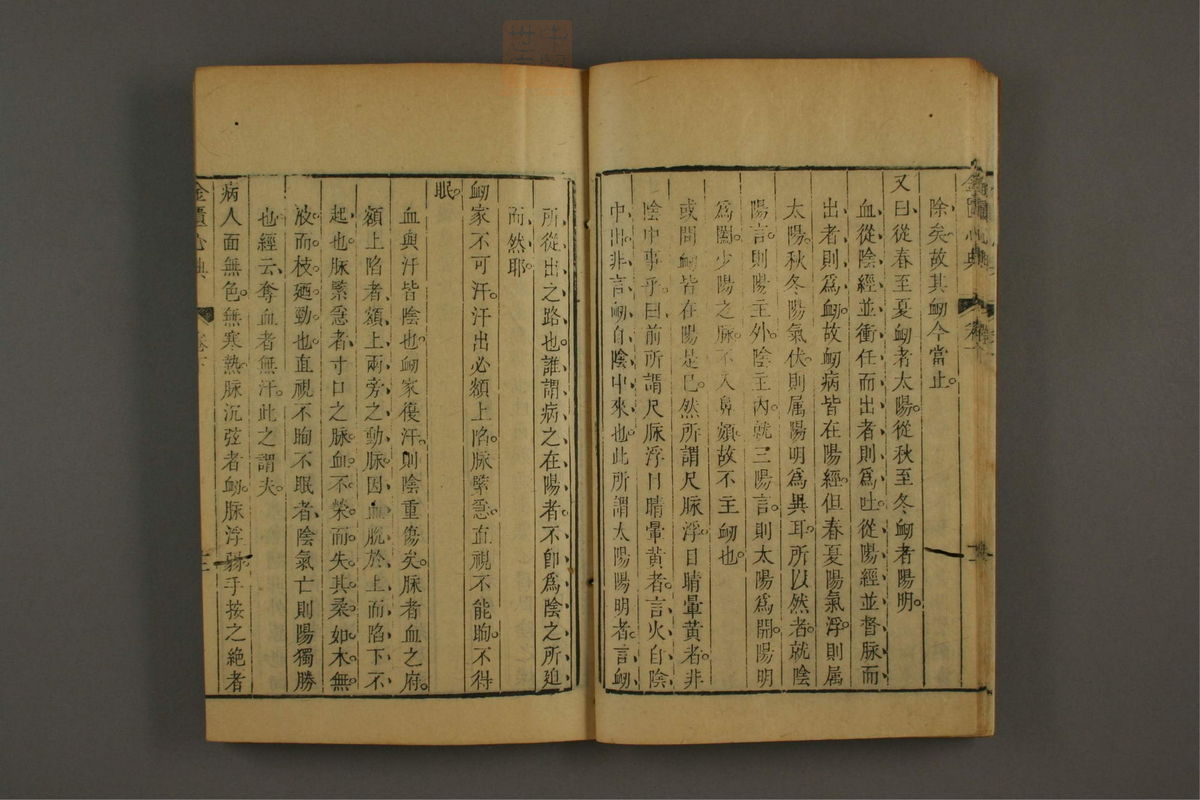 金匱心典
除矣。故其衂今當止。
又曰。從春至夏衂者太陽。從秋至冬衂者陽明。
血從陰經並衝任而出者則爲吐。從陽經並督脈而
出者則爲衂。故衂病皆在陽經。但春夏陽氣浮。則属
太陽。秋冬陽氣伏。則属陽明爲異耳。所以然者。就陰
陽言。則陽主外。陰主內。就三陽言。則太陽爲開。陽明
爲闔。少陽之脈。不入鼻頞。故不主衂也。
或問衂皆在陽是已。然所謂尺脈浮。目睛暈黄者。非
陰中事乎。曰。前所謂尺脈浮。目睛暈黄者。言火自陰
中出。非言衂自陰中來也。此所謂太陽陽明者。言衂
所從出之路也。誰謂病之在陽者。不卽爲陰之所迫
而然耶。
衂家不可汗。汗出必額上陷。脈緊急。直視不能眴。不得
眠。
血與汗皆陰也。衂家復汗。則陰重傷矣。脈者血之府。
額上陷者。額上兩旁之動脈。因血脫於上而陷下不
起也。脈緊急者。寸口之脈。血不榮而失其柔。如木無
液而枝廼勁也。直視不眴不眠者。陰氣亡則陽獨勝
也。經云。奪血者無汗。此之謂夫。
病人面無色。無寒熱。脈沉弦者衂。脈浮弱。手按之絶者
金匱心典